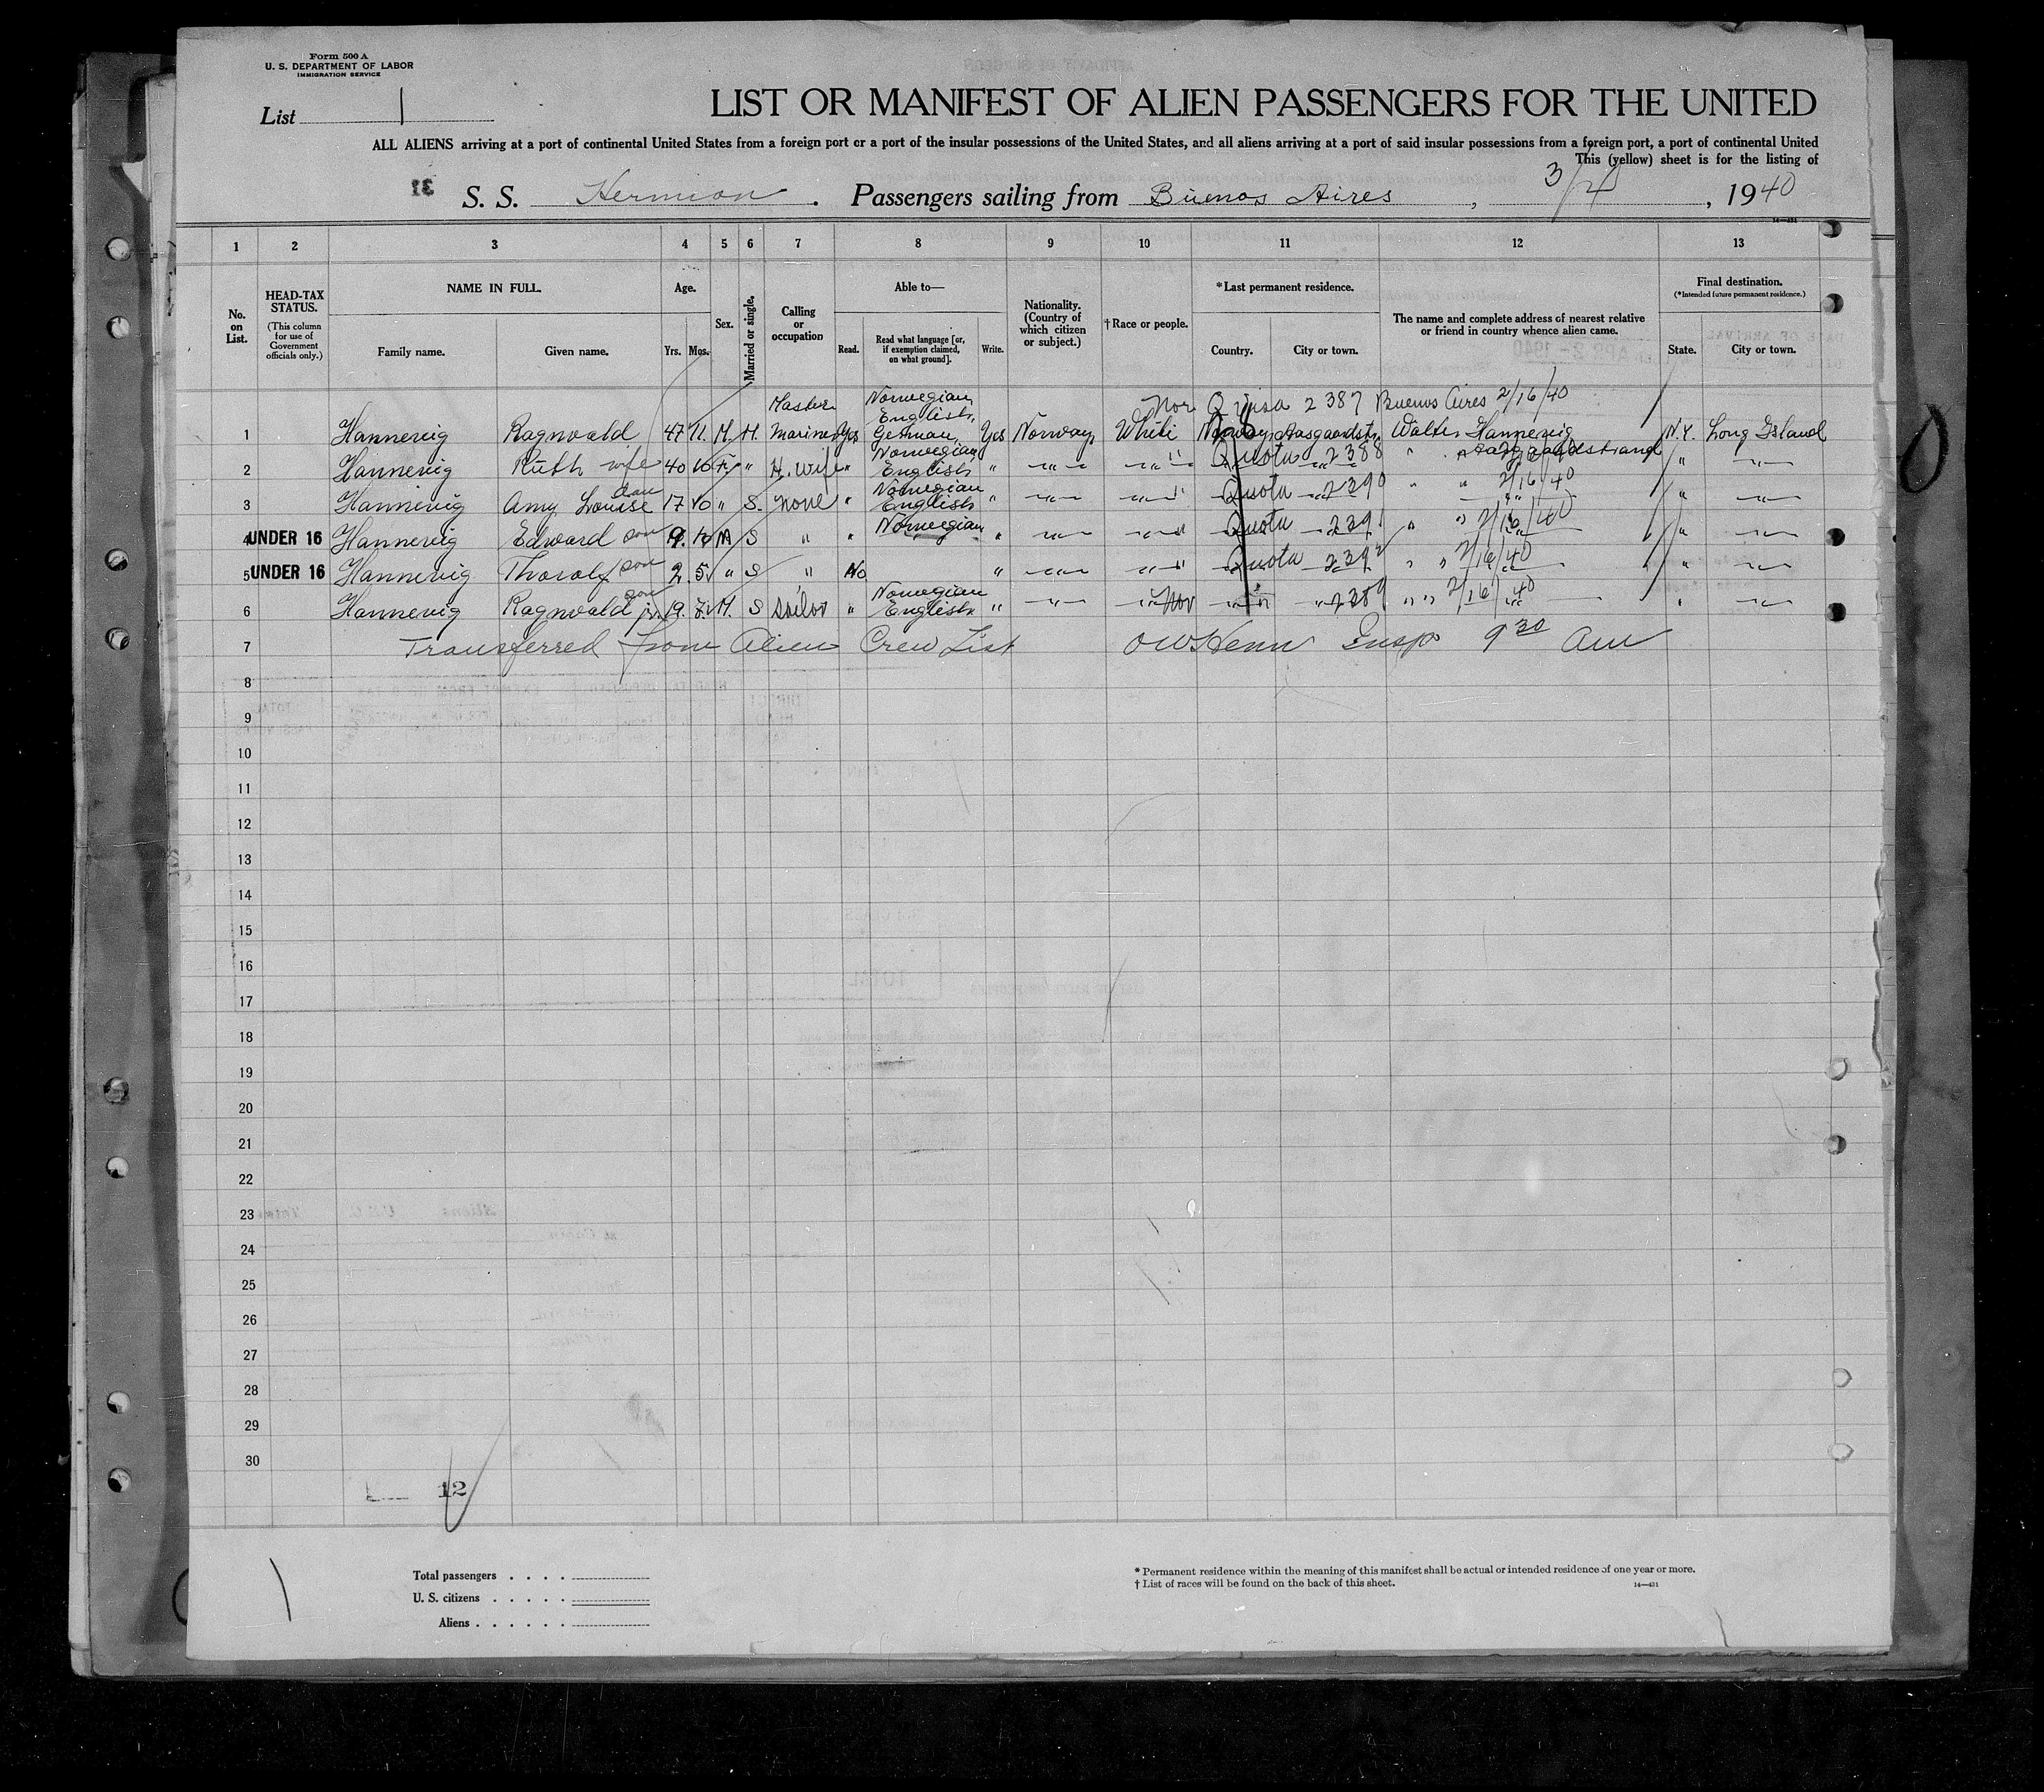 Form 500 A
U. S. DEPARTMENT OF LABOR
IMMIGRATION SERVICE
List 1
LIST OR MANIFEST OF ALIEN PASSENGERS FOR THE UNITED
ALL ALIENS arriving at a port of continental United States from a foreign port or a port of the insular possessions of the United States, and all aliens arriving at a port of said insular possessions from a foreign port, a port of continental United
This (yellow) sheet is for the listing of
S. S. Hermion . Passengers sailing from Buenos Aires , 3/4 , 1940
14—431
1 2 3 4 5 6 7 8 9 10 11 12 13
HEAD-TAX STATUS. (This column for use of Government officials only.)
No. on List.
NAME IN FULL.
Family name. Given name.
Age.
Yrs. Mos.
Sex.
Married or single.
Calling or occupation
Able to—
Read. Read what language [or, if exemption claimed, on what ground]. Write.
Nationality. (Country of which citizen or subject.)
† Race or people.
* Last permanent residence.
Country. City or town.
The name and complete address of nearest relative or friend in country whence alien came.
Final destination.
(* Intended future permanent residence.)
State. City or town.
Nor Q visa 2387 Buenos Aires 2/16/40
1 Hannevig Ragnvald 47 11 M. M. Master Mariner Yes Norwegian, English, German, Yes Norway, White Norway Aasgaardstr. Walter Hannevig N.Y. Long Island
Aasgaardstrand
2 Hannevig Ruth wife 40 10 F. " H. wife " Norwegian English " -"- -"- Quota 2388 " " -"-
3 Hannevig Amy Louise dau 17 10 " S. none " Norwegian English " -"- -"- Quota 2390 " " 2/16/40 " -"-
4 UNDER 16 Hannevig Edward son 9. 10 M S " " Norwegian " -"- -"- Quota 2391 " " 2/16/40 " -"-
5 UNDER 16 Hannevig Thorolf son 2. 5. " S " No " -"- -"- Quota 2392 " " 2/16/40 " -"-
6 Hannevig Ragnvald jr. son 19. 7. M. S sailor " Norwegian English " -"- Nor -"- 2389 " " 2/16/40 " -"-
7 Transferred from Alien Crew List OWHenn Insp 9 30 Am
8
9
10
11
12
13
14
15
16
17
18
19
20
21
22
23
24
25
26
27
28
29
30
12
Total passengers . . . .
U. S. citizens . . . . .
Aliens . . . . . .
* Permanent residence within the meaning of this manifest shall be actual or intended residence of one year or more.
† List of races will be found on the back of this sheet.
14—431